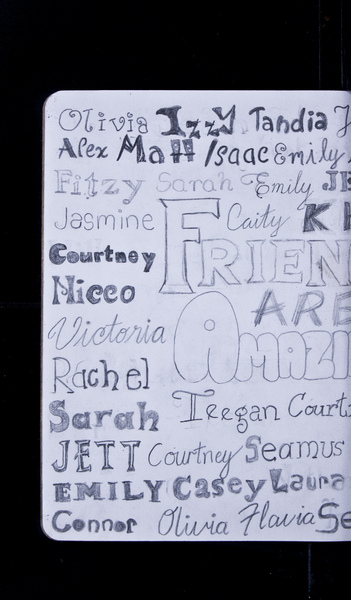 Olivia Izzy Tandia
Alex Matt Isaac Emily
Fitzy Sarah Emily JE
Jasmine Caity K
Courtney FRIEN
Nicco ARE
Victoria AMAZI
Rachel
Sarah Teegan Court
JETT Courtney Seamus
EMILY Casey Laura
Connor Olivia Flavia Se